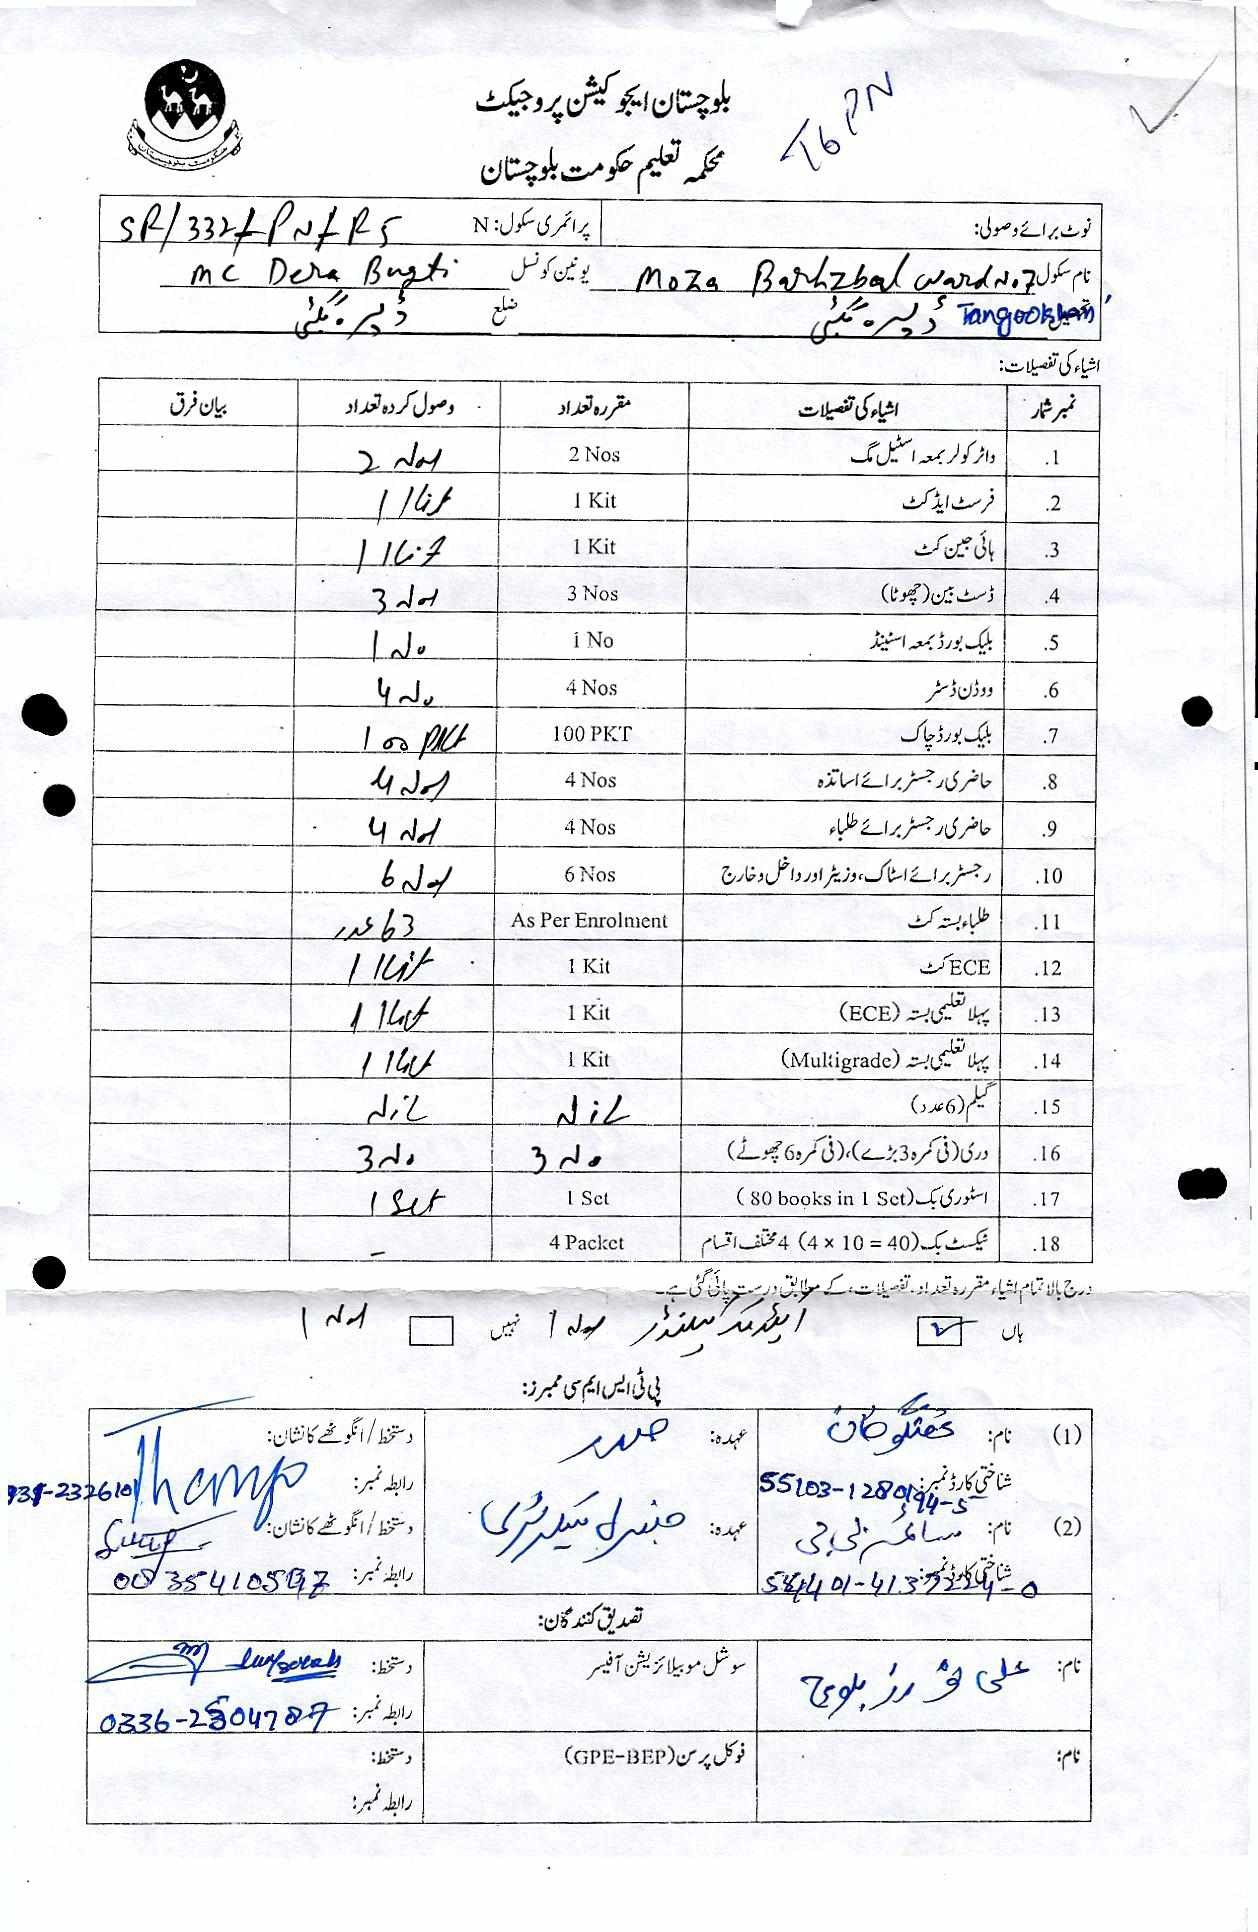 بلوچستان ایجوکیشن پروجیکٹ
T6 PN
محکمہ تعلیم حکومت بلوچستان
نوٹ برائے وصولی: پرائمری سکول: N SR/332/PN/R5
نام سکول Moza Barhzbal ward No.7 یونین کونسل MC Dera Bugti
Tangookhan ڈیرہ بگٹی ضلع ڈیرہ بگٹی
اشیاء کی تفصیلات:
نمبر شمار اشیاء کی تفصیلات مقررہ تعداد وصول کردہ تعداد بیان فرق
1. واٹر کولر بمعہ اسٹیل مگ 2 Nos 2 Nos
2. فرسٹ ایڈ کٹ 1 Kit 1 Kit
3. ہائی جین کٹ 1 Kit 1 Kit
4. ڈسٹ بین (چھوٹا) 3 Nos 3 Nos
5. بلیک بورڈ بمعہ اسٹینڈ 1 No 1 No
6. ووڈن ڈسٹر 4 Nos 4 No
7. بلیک بورڈ چاک 100 PKT 100 PKt
8. حاضری رجسٹر برائے اساتذہ 4 Nos 4 Nos
9. حاضری رجسٹر برائے طلباء 4 Nos 4 Nos
10. رجسٹر برائے اسٹاک، وزیٹر اور داخل و خارج 6 Nos 6 Nos
11. طلباء بستہ کٹ As Per Enrolment 63 عدد
12. ECE کٹ 1 Kit 1 Kit
13. پہلا تعلیمی بستہ (ECE) 1 Kit 1 Kit
14. پہلا تعلیمی بستہ (Multigrade) 1 Kit 1 Kit
15. گیلم (6 عدد) Nil Nil
16. دری (فی کمرہ 3 بڑے)، (فی کمرہ 6 چھوٹے) 3 No 3 No
17. اسٹوری بک (80 books in 1 Set) 1 Set 1 Set
18. ٹیکسٹ بک (4 × 10 = 40) 4 مختلف اقسام 4 Packet -
درج بالا تمام اشیاء مقررہ تعداد، تفصیلات، کے مطابق درست پائی گئی ہے۔
ہاں 1 Nos نہیں 1 Nos
پی ٹی ایس ایم سی ممبرز:
(1) نام: عہدہ: صدر دستخط/انگوٹھے کا نشان:
شناختی کارڈ نمبر: 55103-1280194-5 رابطہ نمبر:
(2) نام: عہدہ: جنرل سیکرٹری دستخط/انگوٹھے کا نشان:
شناختی کارڈ نمبر: رابطہ نمبر:
تصدیق کنندگان:
نام: سوشل موبیلائزیشن آفیسر دستخط:
رابطہ نمبر: 0336-2804787
نام: فوکل پرسن (GPE-BEP) دستخط:
رابطہ نمبر: